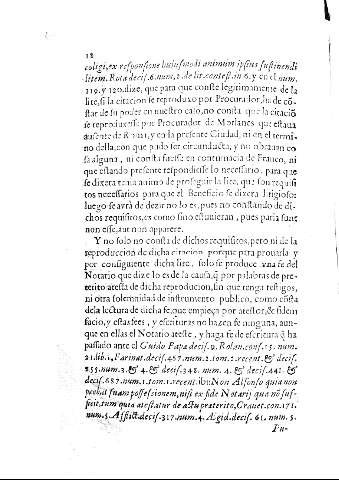 12
colegi, ex responsione huiusmodi animum ipsius sustinendi
litem. Rota decis. 6. num. 2. de lit. contest. in 6. y en el num.
119. y 120. dize, que para que conste legitimamente de la
lite, si la citacion se reproduxo por Procurador, ha de cõ-
star de su poder en nuestro caso, no consta que la citaciõ
se reproduxesse por Procurador de Morlanes que estaua
ausente de Roma, y en la presente Ciudad, ni en el termi-
no della, con que pudo ser circunducta, y no obraron co
sa alguna, ni consta fuesse en contumacia de Franco, ni
que estando presente respondiesse lo necessario, para que
se dixera tenia animo de proseguir la lite, que son requisi
tos necessarios para que el Beneficio se dixera litigioso:
luego se avrà de dezir no lo es, pues no constando de di-
chos requisitos, es como sino estuuieran, pues paria sunt
non esse, aut non apparere.
Y no solo no consta de dichos requisitos, pero ni de la
reproduccion de dicha citacion porque para prouarla y
por consiguiente dicha lite, solo se produce vna fe del
Notario que dize lo es de la causa, q̃ por palabras de pre-
terito atesta de dicha reproducion, sin que tenga testigos,
ni otra solemnidad de instrumento publico, como consta
de la lectura de dicha fe, que empieça por atestor, & fidem
facio, y estas fees, y escrituras no hazen fe ninguna, aun-
que en ellas el Notario ateste, y haga fe de escritura q̃ ha
passado ante el Guido Papa decis. 9. Rolan. conf. 15. num.
21. lib. 1. Farinat. decis. 467. num. 2. tom. 2. recent. & decis.
255. num. 3. & 4. & decis. 348. num. 4. & decis. 441. &
decis. 687. num. 1. tom. 1. recent. ibi: Non Alfonso quia non
probat suam possessionem, nisi ex fide Notarij qua nõ suf-
ficit, tum quia atestatur de actu præterito, Cranet. con. 171.
num. 5. Afflict. decis. 317. num. 4. Ægid. decis. 61. num. 5.
Pu-